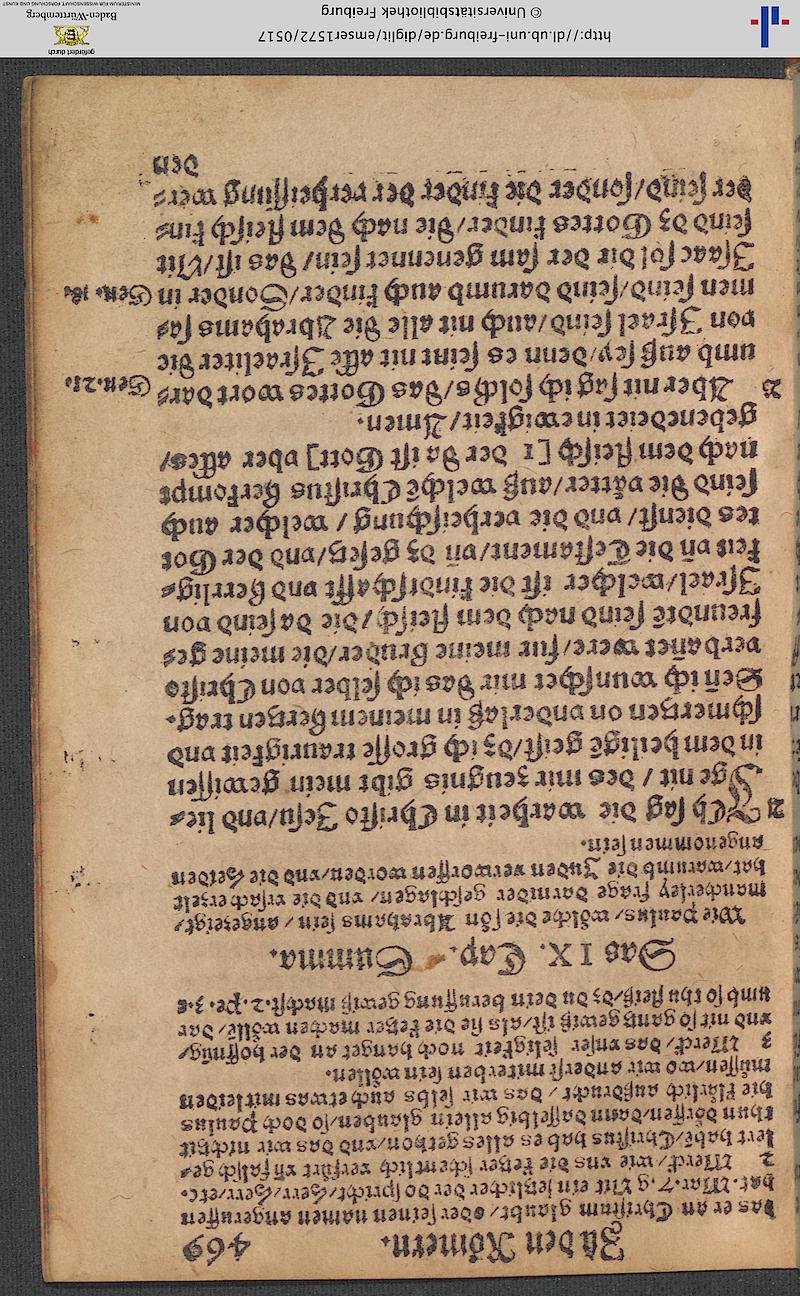 Zů den Römern. 469
das er an Christum glaubt/ oder seinen namen angeruffen
hat. Mar. 7. g Nit ein jeglicher der do spricht/ Herr/ Herr/ etc.
2 Merck/ wie vns die ketzer schentlich verfürt vñ falsch ge-
lert habē/ Christus hab es alles gethon/ vnd das wir nichts
thun dörffen/ dann dasselbig allein glauben/ so doch Paulus
hie klärlich außdruckt/ das wir selbs auch etwas mitleiden
müssen/ wo wir anderst miterben sein wöllen.
3 Merck/ das vnser seligkeit noch hanget an der hoffnūg/
vnd nit so gantz gewiß ist/ als sie die ketzer machen wöllē/ dar
umb so thu fleiß/ dz du dein beruffung gewiß machst. 2. pe. 1. c
Das IX. Cap. Summa.
Wie Paulus/ wölche die sön Abrahams sein/ angezeigt/
mancherley frage darwider geschlagen/ vnd die vrsach erzelt
hat/ warumb die Juden verworffen worden/ vnd die Heiden
angenommen sein.
A ICh sag die warheit in Christo Jesu/ vnd lie-
ge nit / des mir zeugnis gibt mein gewissen
in dem heiligē geist/ dz ich grosse traurigkeit vnd
schmertzen on vnderlaß in meinem hertzen trag.
Deñ ich wunschet mir das ich selber von Christo
verbañet were/ für meine brüder/ die meine ge-
freundtē seind nach dem fleisch/ die da seind von
Israel/ welcher ist die kindtschafft vnd herrlig-
keit vñ die Testament/ vñ dz gesetz/ vnd der Got
tes dienst/ vnd die verheischung / welcher auch
seind die vätter/ auß welchē Christus herkompt
nach dem fleisch [1 der da ist Gott] vber alles/
gebenedeiet in ewigkeit/ Amen.
B Aber nit sag ich solchs/ das Gottes wort dar- Gen. 21.
umb auß sey/ denn es seint nit alle Israeliter die
von Israel seind/ auch nit alle die Abrahams sa-
men seind/ seind darumb auch kinder/ Sonder in Gen. 18.
Isaac sol dir der sam genennet sein/ das ist/ Nit
seind dz Gottes kinder/ die nach dem fleisch kin-
der seind/ sonder die kinder der verheissung wer-
den
http://dl.ub.uni-freiburg.de/diglit/emser1572/0517
© Universitätsbibliothek Freiburg
gefördert durch
Baden-Württemberg
MINISTERIUM FÜR WISSENSCHAFT, FORSCHUNG UND KUNST